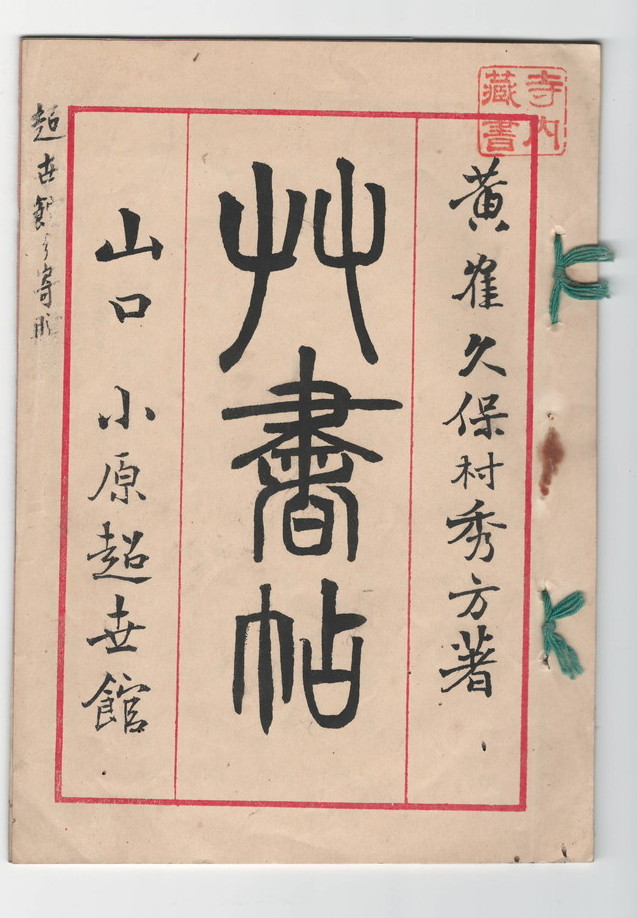 寺内
藏書
黄隺久保村秀方著
艸書帖
山口 小原超世館
超世館ヨリ寄